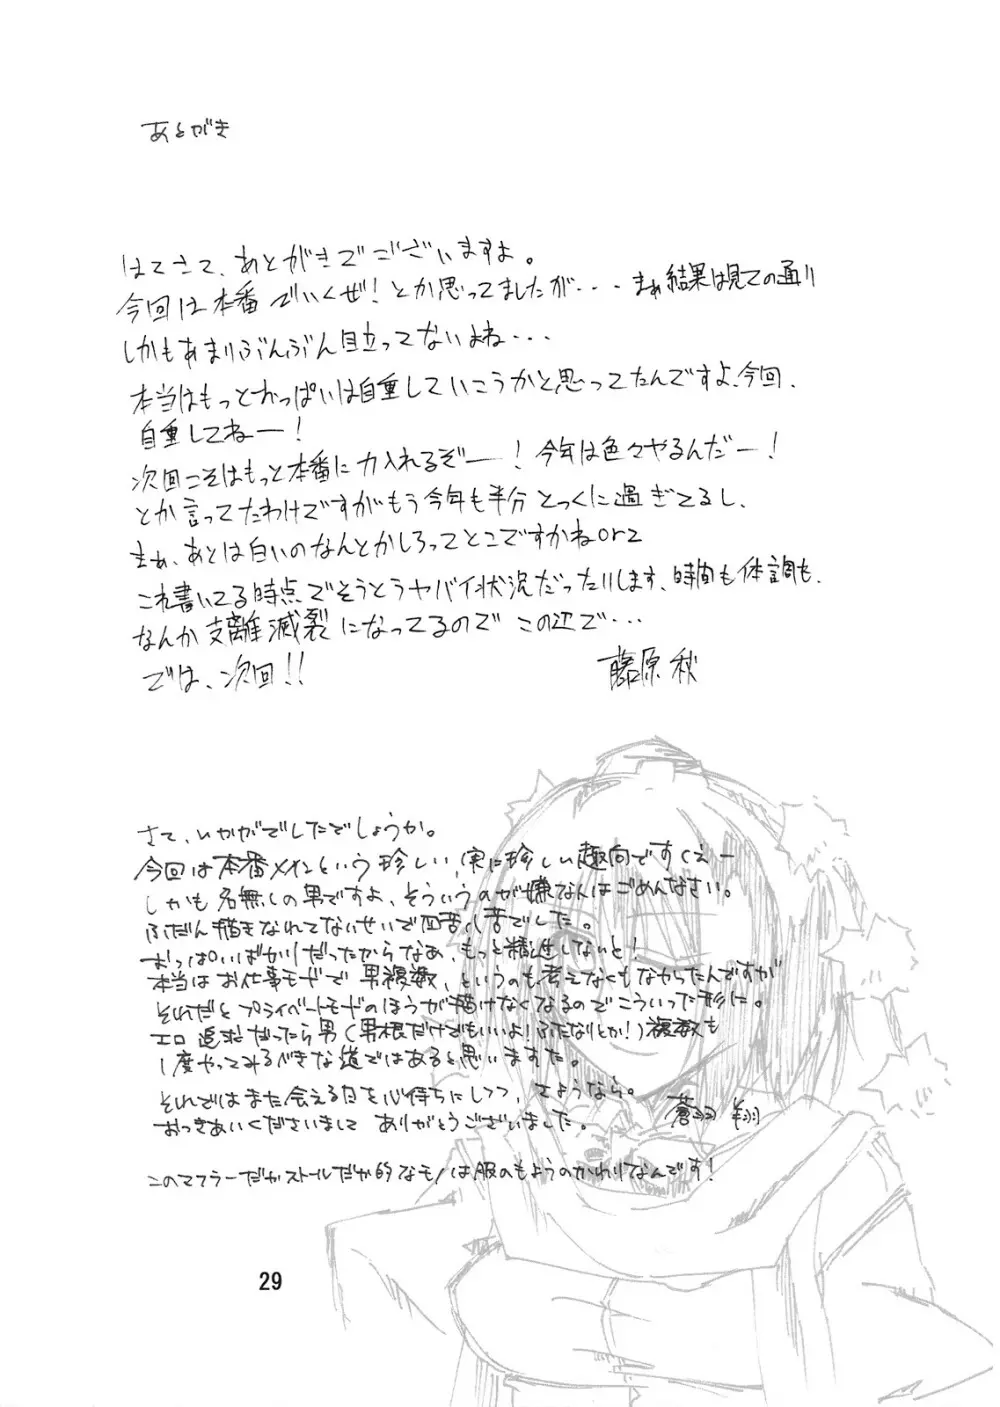 あとがき
はてさて、あとがきでございますよ。
今回は本番でいくぜ!とか思ってましたが・・・まぁ結果は見ての通り
しかもあまりぶんぶん目立ってないよね・・・
本当はもっとおっぱいは自重していこうかと思ってたんですよ、今回、
自重してねー!
次回こそはもっと本番に力入れるぞー!今年は色々やるんだー!
とか言ってたわけですがもう今年も半分とっくに過ぎてるし、
まぁ、あとは白いのなんとかしろってとこですかねorz
これ書いてる時点でそうとうヤバイ状況だったりします、時間も体調も、
なんか支離滅裂になってるのでこの辺で・・・
では、次回!!
藤原秋
さて、いかがでしたでしょうか。
今回は本番メインという珍しい、実に珍しい趣向ですぐえー
しかも名無しの男ですよ、そういうのが嫌な人はごめんなさい。
ふだん描きなれてないせいで四苦八苦でした。
おっぱいばかりだったからなあ、もっと精進しないと!
本当はお仕事モードで男複数、というのも考えなくもなかったんですが
それだとプライベートモードのほうが描けなくなるのでこういった形に。
エロ追求だったら男(男根だけでもいいよ!ふたなりとか!)複数も
1度やってみるべきな道ではあると思いますた。
それではまた会える日を心待ちにしつつ、さようなら。
おつきあいくださいまして ありがとうございました。
蒼羽 翔
このマフラーだかストールだか的なモノは服のもようのかわりなんです!
29